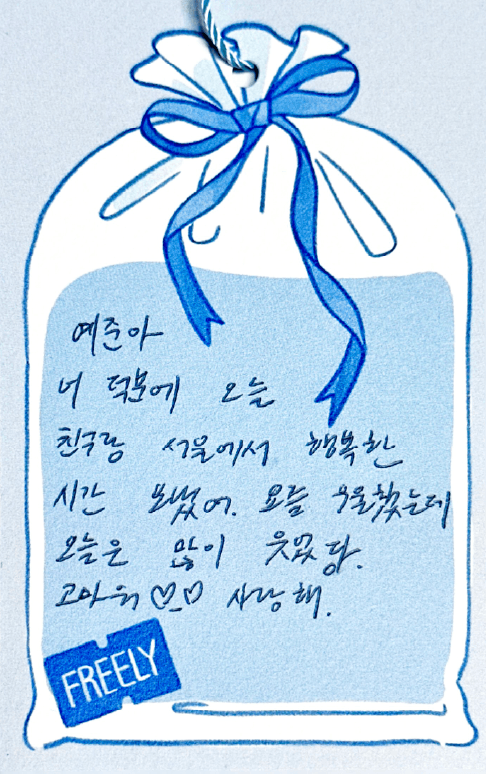 예준아
너 덕분에 오늘
친구랑 서울에서 행복한
시간 보냈어. 요즘 우울했는데
오늘은 많이 웃었다.
고마워 ♡_♡ 사랑해.
FREELY